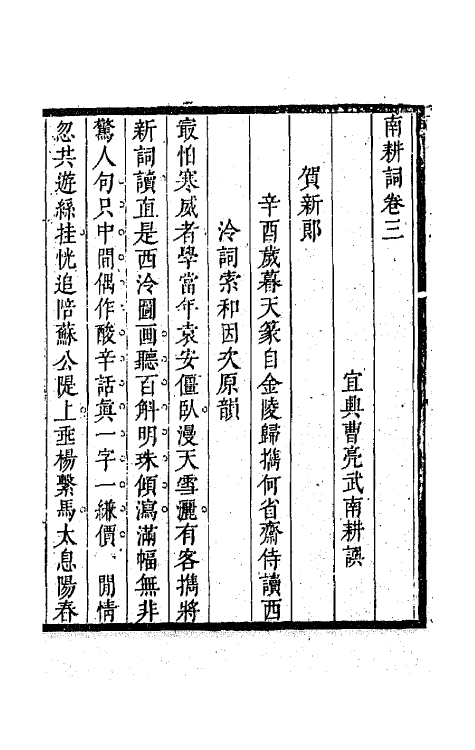 南耕詞卷三
宜興曹亮武南耕譔
賀新郞
辛酉歲暮天篆自金陵歸攜何省齋侍讀西
泠詞索和因次原韻
最怕寒威者學當年袁安僵臥漫天雪灑有客攜將
新詞讀直是西泠圖画聽百斛明珠傾瀉滿幅無非
驚人句只中間偶作酸辛話眞一字一縑價 閒情
忽共遊絲挂恍追陪蘇公隄上垂楊繫馬太息陽春